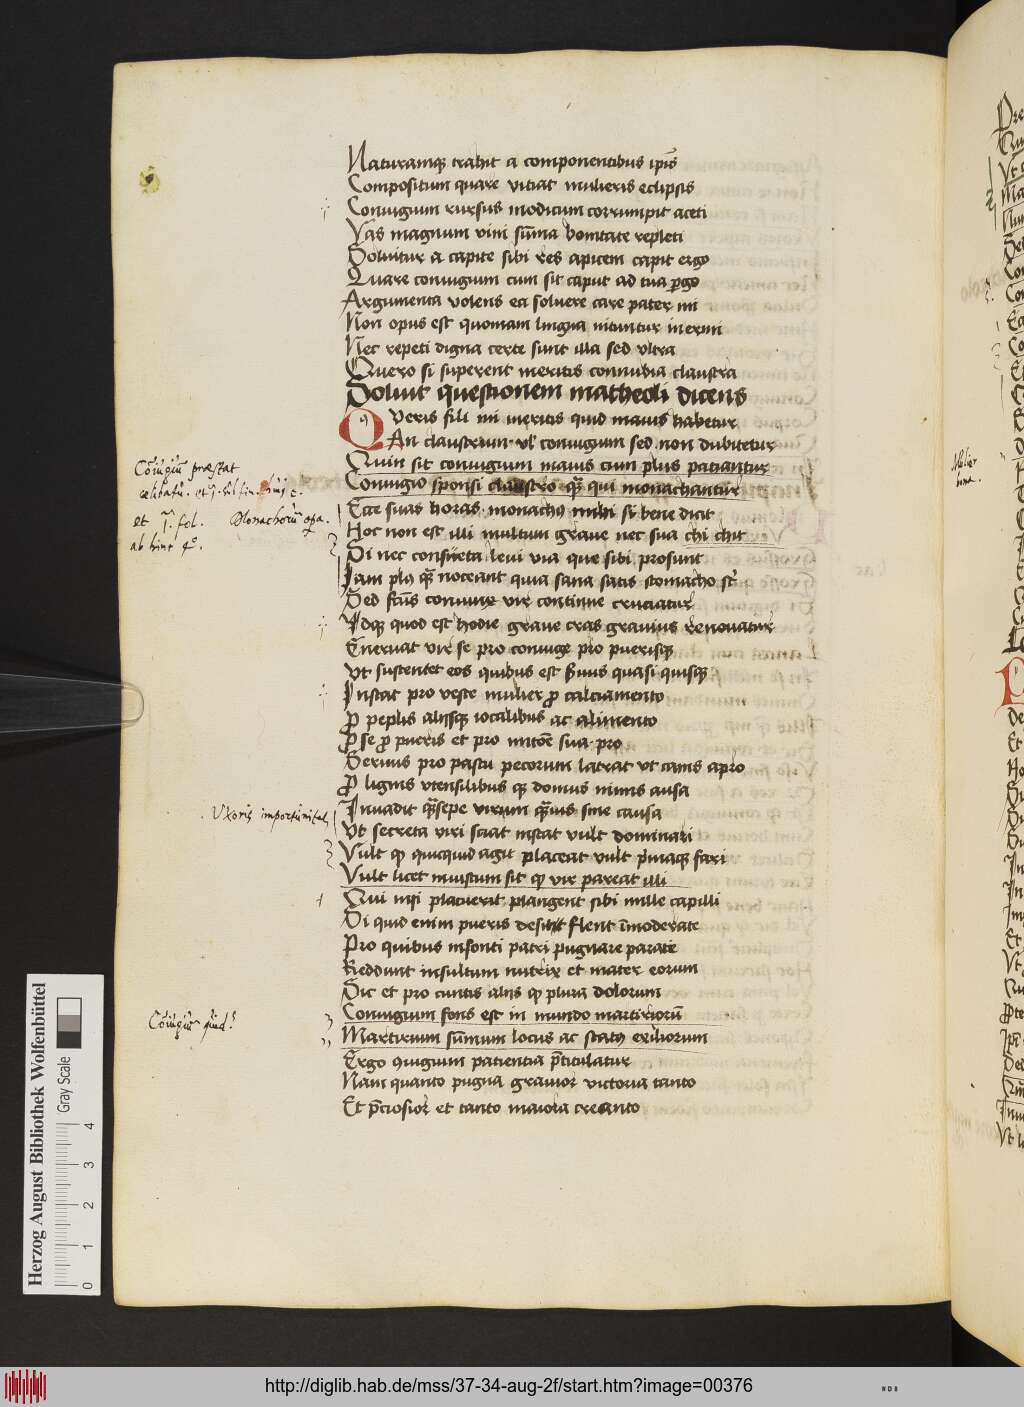 Naturamq trahit a componentibus ipis
Compositum quare vitiat mulieris eclipsis
Coniugium rursus modicum corrumpit aceti
Vas magnum vini sūma bonitate repleti
Soluitur a capite sibi res apicem capit ergo
Quare coniugium cum sit caput ad tua pgo
Argumenta volens ea soluere care pater mi
Non opus est quoniam lingua nituntur inermi
Nec repeti digna certe sunt illa sed vltra
Quero si superent meritis connubia claustra
Soluit questionem matheoli dicens
Queris fili mi meritis quid maius habetur
An claustrum vl coniugium sed non dubitetur
Quin sit coniugium maius cum plus patiantur
Coniugio sponsi claustro qz qui monachantur
Ecce suas horas monachus mihi si bene dicit
Hoc non est illi multum graue nec sua chi chit
Si nec consueta leui via que sibi prosunt
Iam plus qz noceant quia sana satis stomacho st
Sed fctus coniunx vir continue cruciatur
Idqz quod est hodie graue cras grauius renouatur
Eneruat vir se pro coniuge pro puerisqz
Vt sustentet eos quibus est seruus quasi quisqz
Instat pro veste mulier p calciamento
p peplis aliisqz iocalibus ac alimento
p se p pueris et pro
Seruus pro pastu pecorum latrat vt canis apro
p lignis vtensilibus qz domus nimis ausa
Inuadit qzsepe virum qzuis sine causa
Vt secreta viri sciat instat vult dominari
Vult qz quicquid agit placeat vult pmaqz fari
Vult licet iniustum sit qz vir pareat illi
Qui nisi placuerit plangent sibi mille capilli
Si quid enim pueris desit flent īmoderate
Pro quibus insonti patri pugnare parate
Reddunt insultum nutrix et mater eorum
Sic et pro cunctis aliis qz plura dolorum
Coniugium fons est in mundo martiriorū
Martirum sūmum locus ac status exiliorum
Ergo 9iugium patientia pticulatur
Nam quanto pugna grauior victoria tanto
Et pciosior et tanto maiora creanto
Cōiugiū præstat
cælibatu.
et fol. Monachorū opa.
ab hinc 4°.
Vxoris importunitas
Cōiugiū quid?
Mulier
bona.
Herzog August Bibliothek Wolfenbüttel
Gray Scale
0 1 2 3 4
http://diglib.hab.de/mss/37-34-aug-2f/start.htm?image=00376